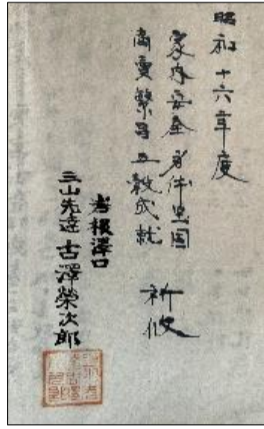 昭和十六年度
家内安全 身体堅固
商賣繁昌 五穀成就
祈攸
岩根澤口
三山先達 古澤榮次郎